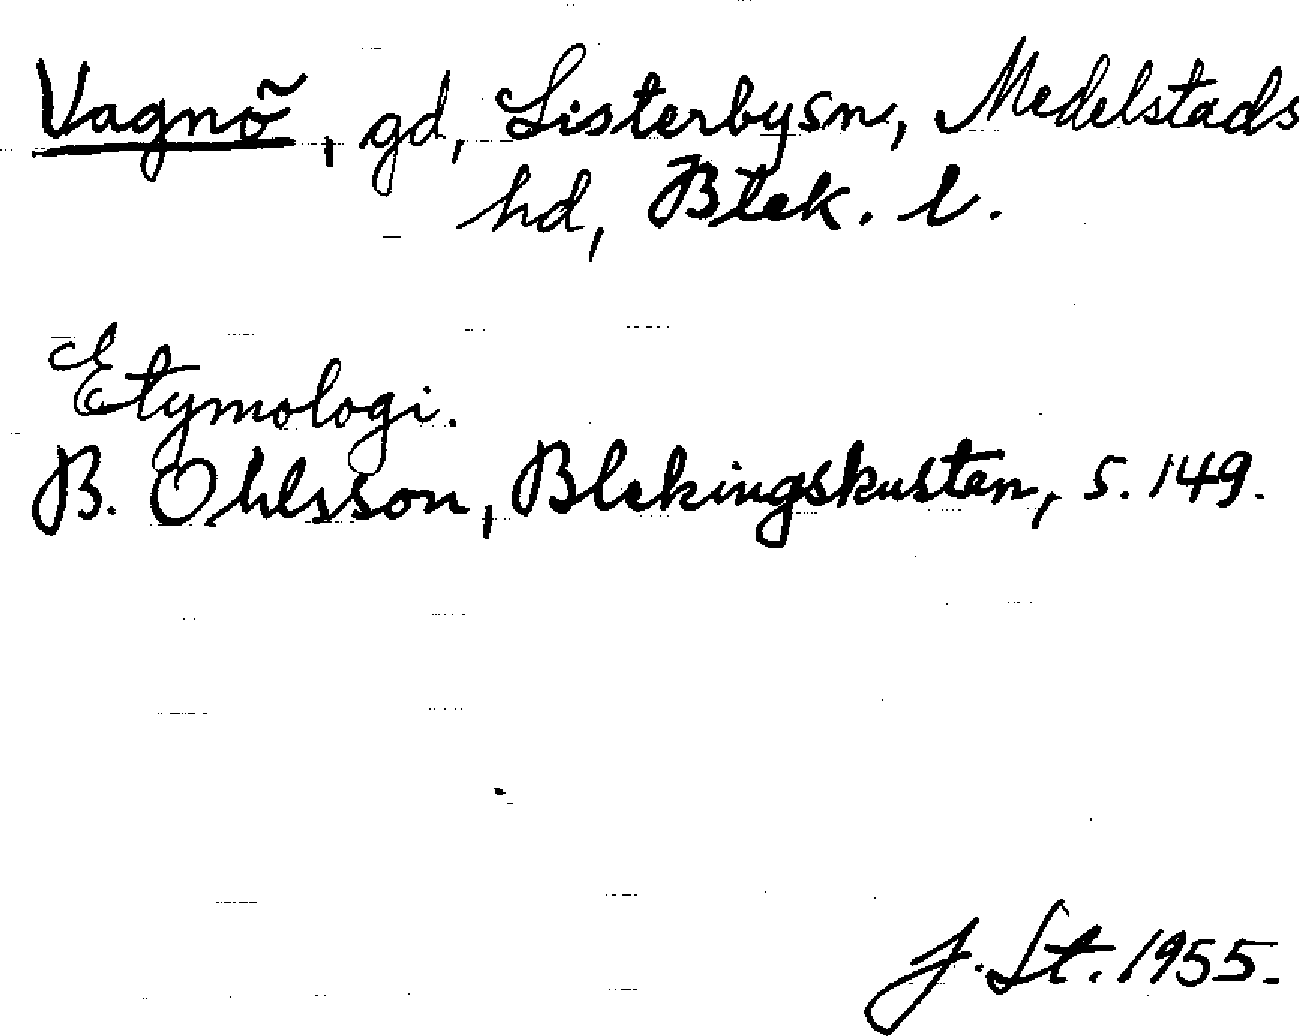 Vagnö, gd, Listerby sn, Medelstads
hd, Blek. l.
Etymologi.
B. Ohlsson, Blekingskusten, s. 149.
J. St. 1955.